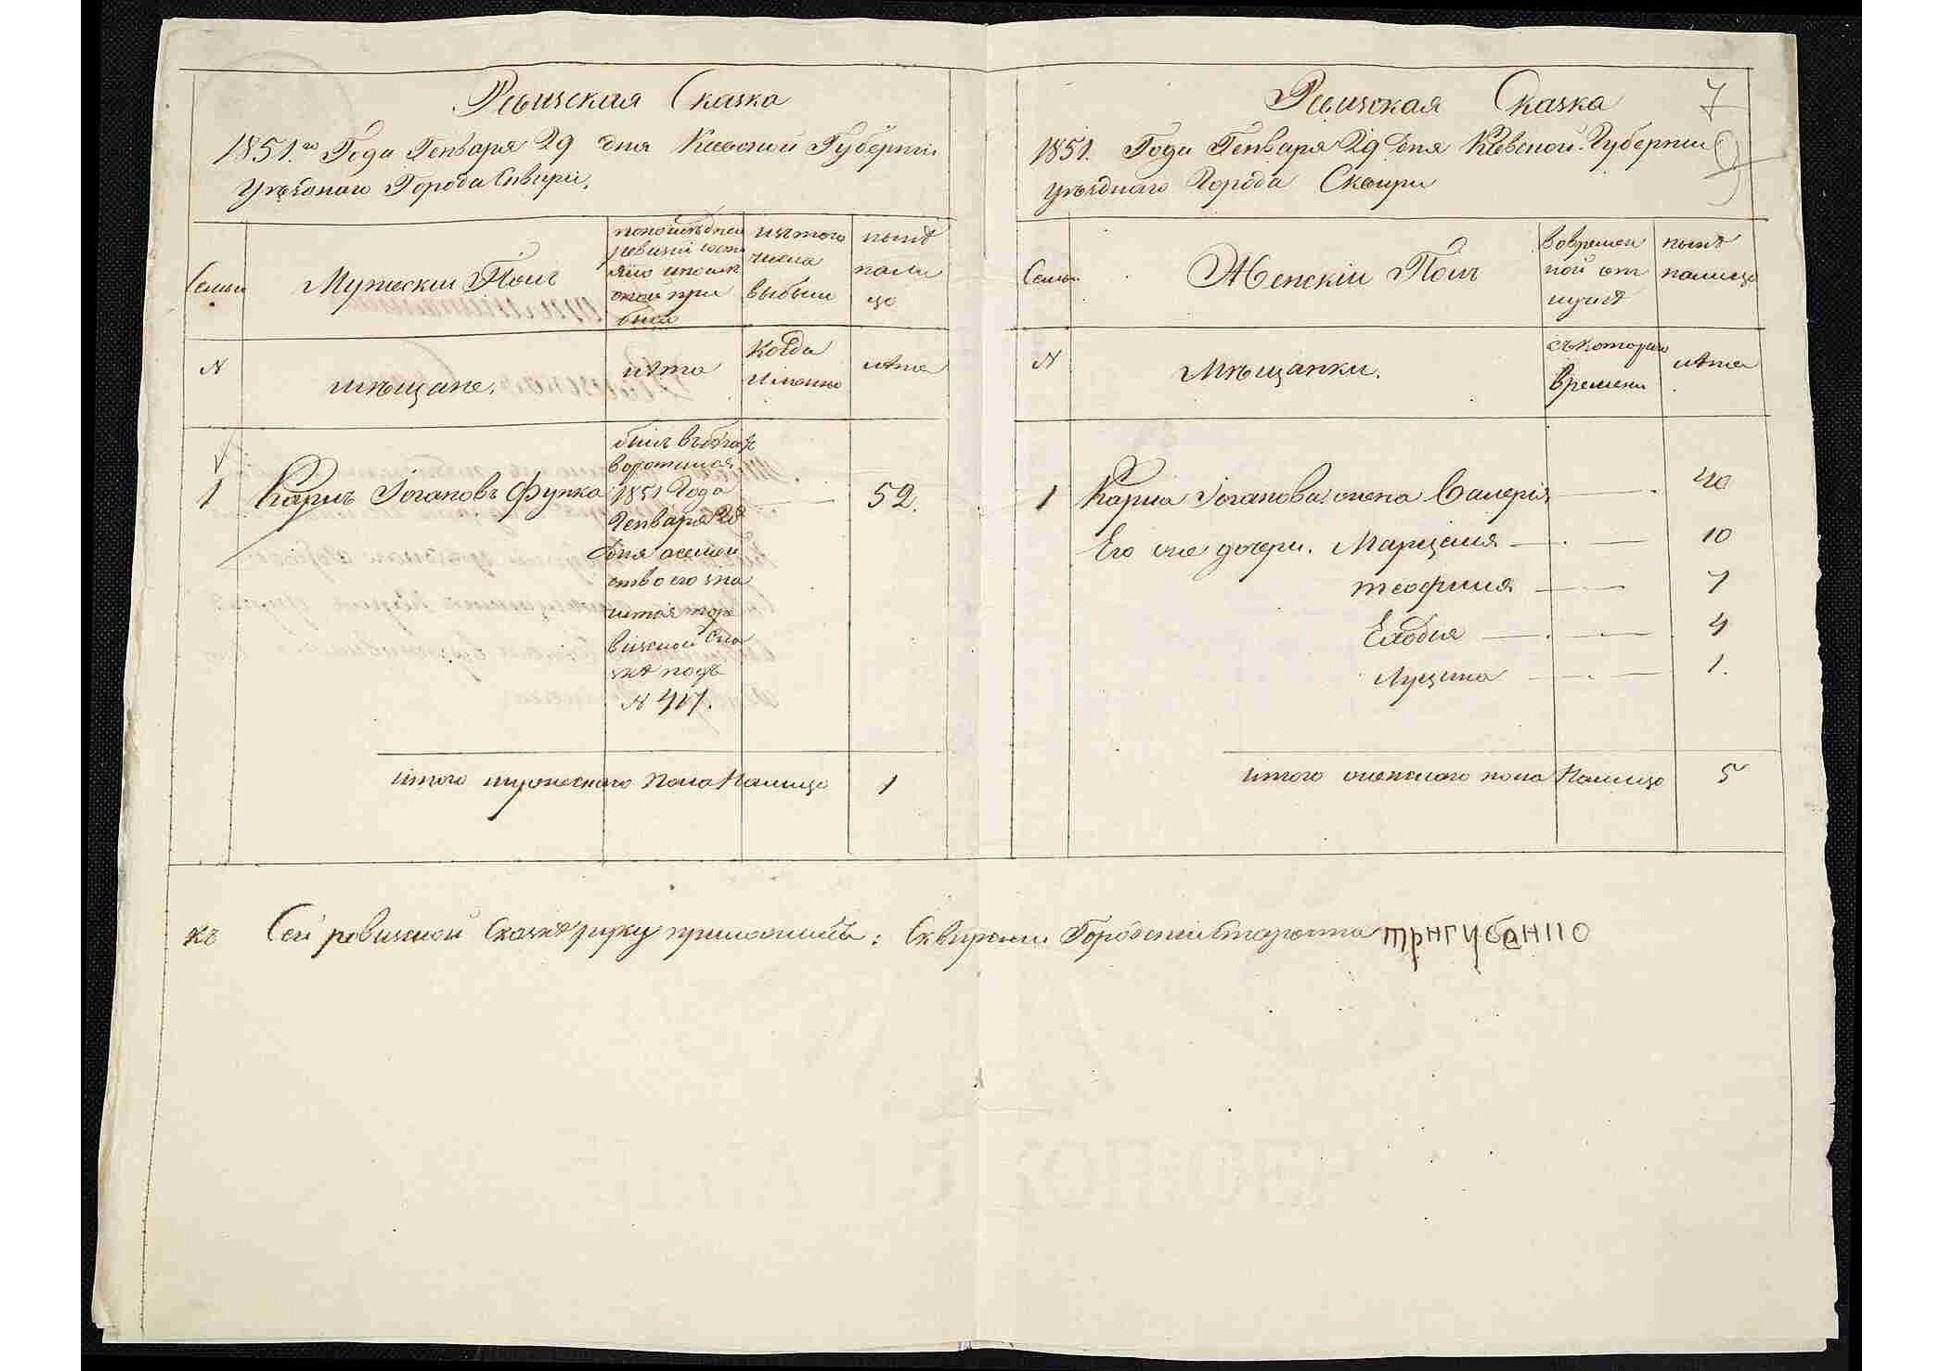 Ревизская Сказка
1851.го Года Генваря 29 дня Киевской Губерніи
Уѣзднаго Города Сквири.
Семьи
Мужескій Полъ
по послѣдней
ревизіи состо
яло и послѣ
оной при
было
изъ того
числа
выбыло
нынѣ
нали
цо
N
мѣщане.
лѣта
Когда
Именно
лѣта
былъ въ бѣгах
1
Карлъ Іогановъ Функа
1851 Года
Генваря 28
дня
N 417.
52.
Итого мужескаго пола Налицо 1
Ревизская Сказка
7
1851. Года Генваря 29 дня Кіевской Губерніи
уѣзднаго Города Сквири
Семьи
Женскій Полъ
во времен
ной от
лучкѣ
нынѣ
налицо
N
Мѣщанки.
съ котораго
времени
лѣта
1 Карла Іоганова жена Валерія 40
Его же дочери. Марцеля 10
теофиля 7
4
Луцина 1.
Итого женскаго пола Налицо 5
Къ Сей ревизской Сказкѣ руку приложилъ: Сквирскій Городскій Староста